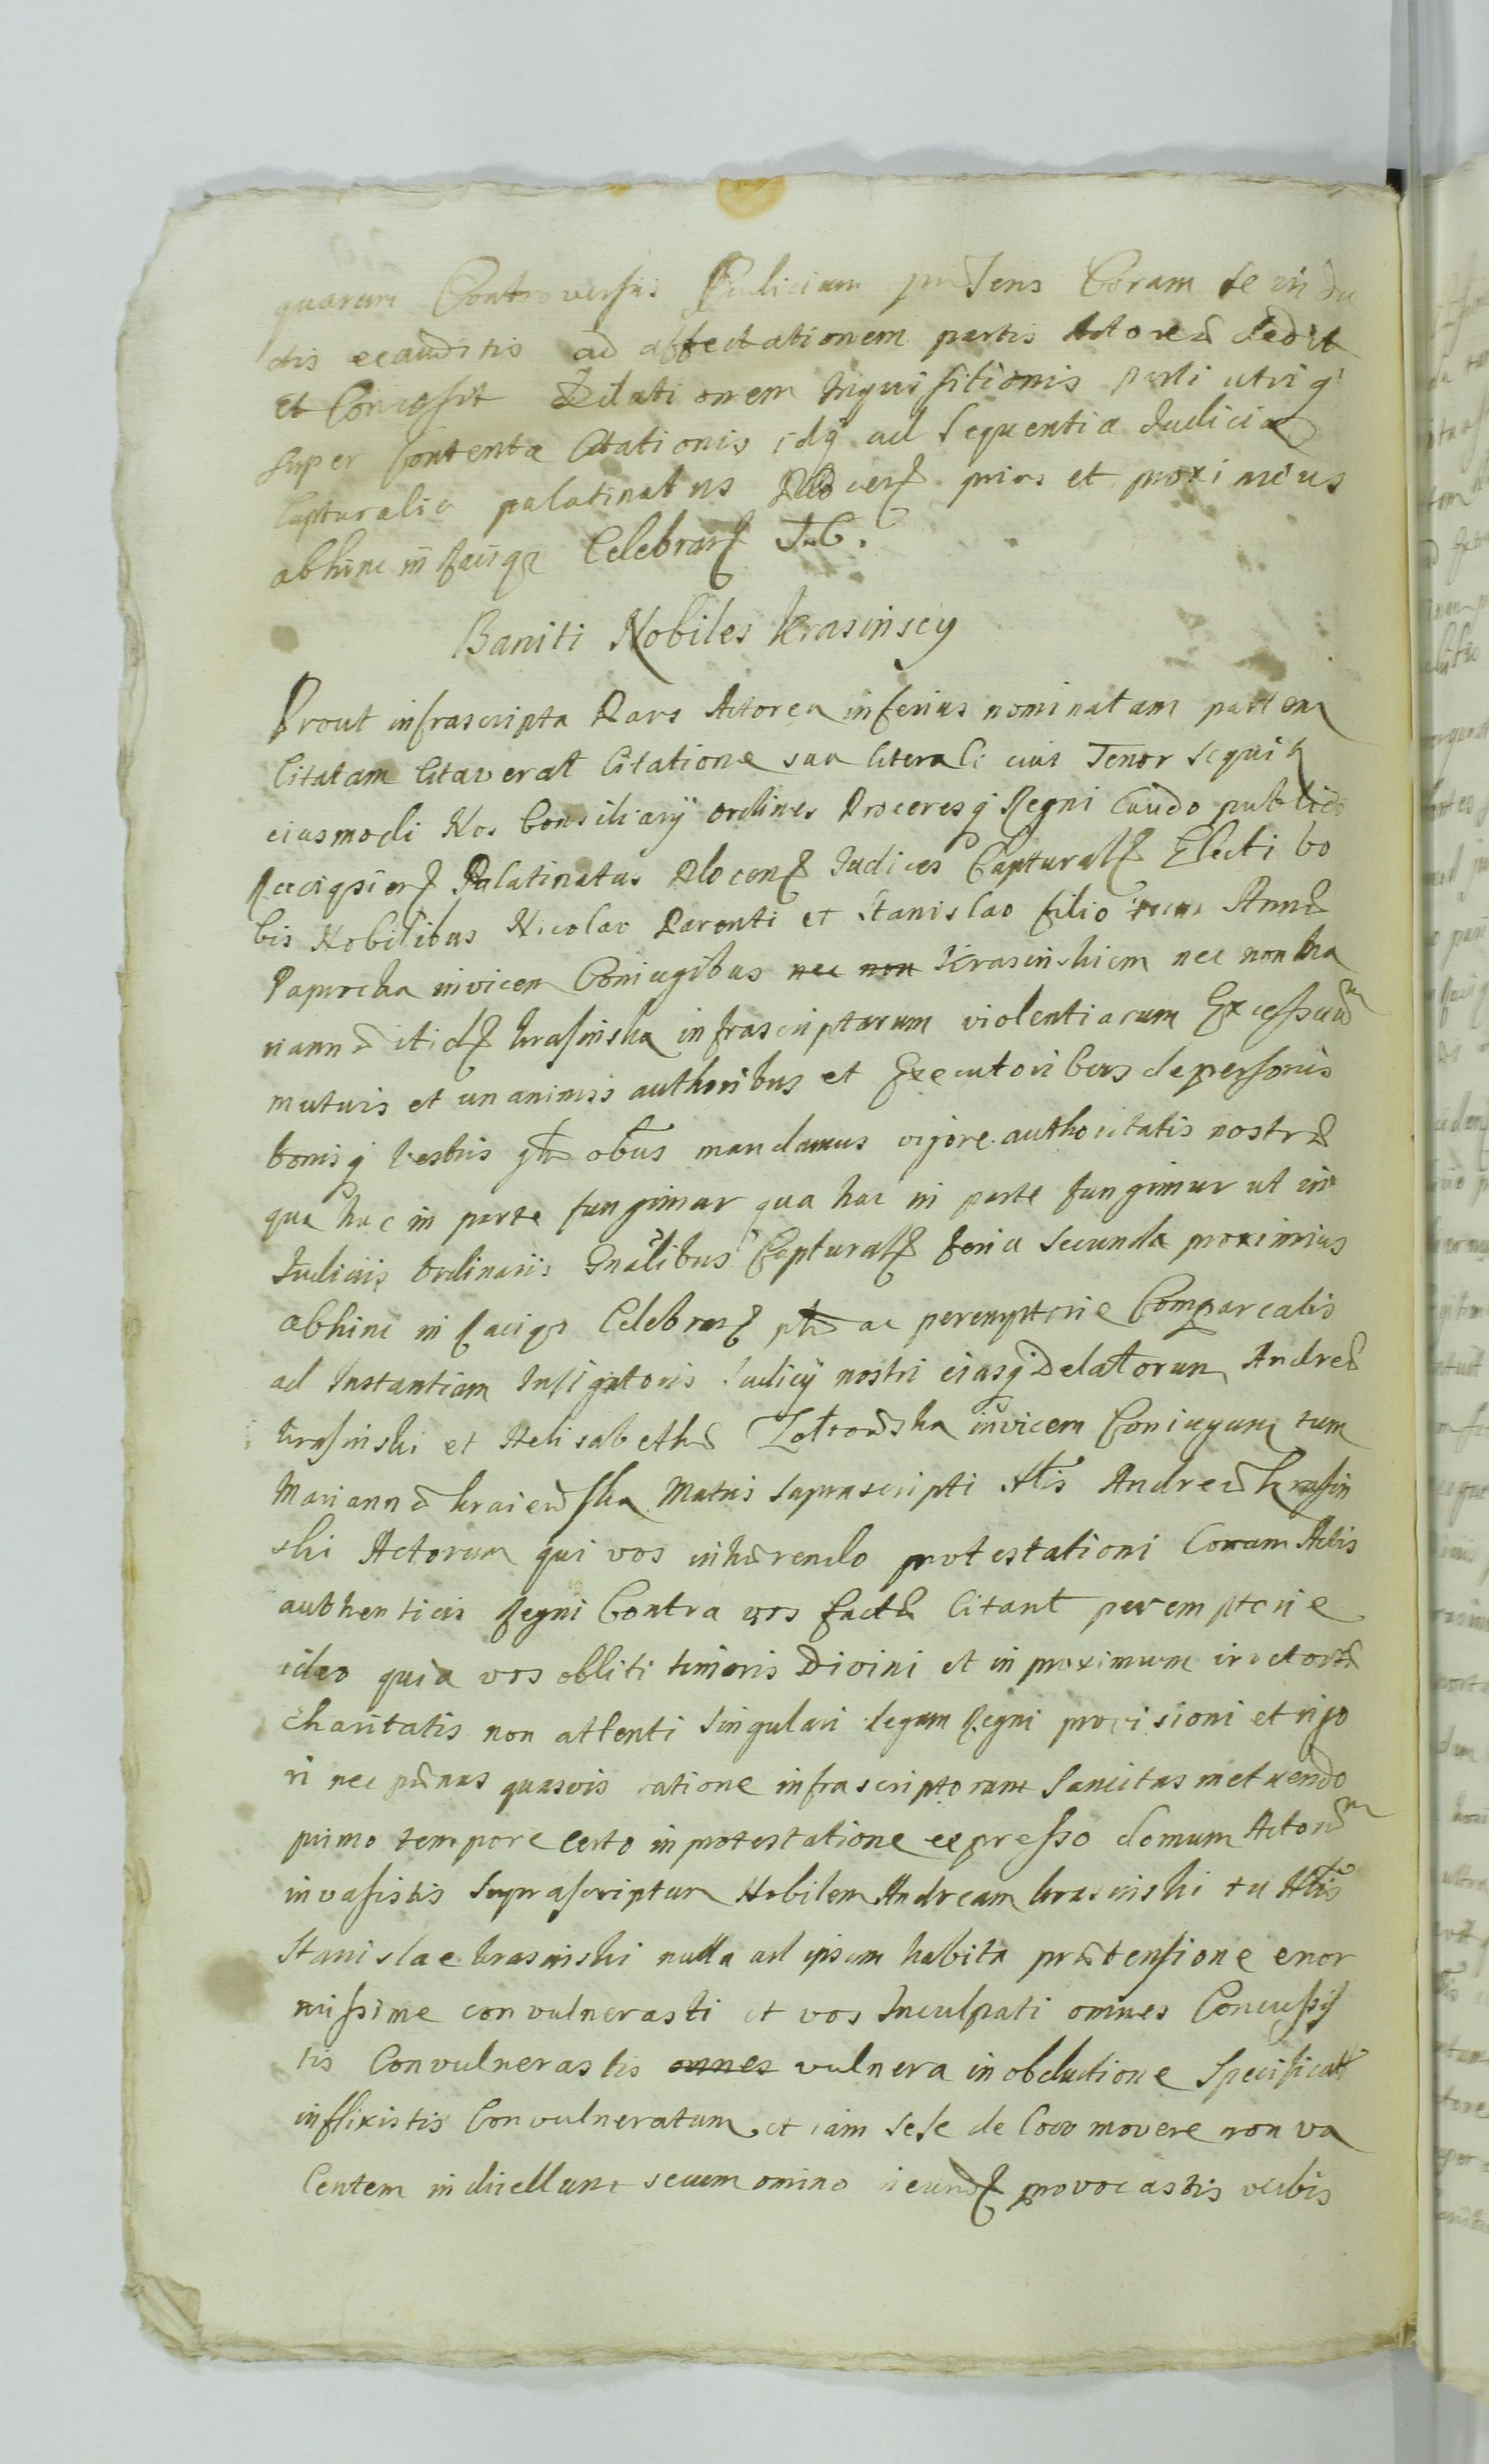 quarum Controversiis Iudicium præsens Coram se in du
ctis exauditis ad affectationem partis Actoreæ dedit
et Concessit Dilationem Inquisitionis parti utriq
super Contenta Citationis idq ad Sequentia Iudicia
Capturalia palatinatus prius et proximius
abhinc in Raciąż Celebran T. C.
Baniti Nobiles Krasinscy
Prout infrascripta Pars Actorea inferius nominatam partem
Citatam Citaverat Citatione sua literali cuius Tenor sequit
eiusmodi Nos Consiliarÿ ordines Proceresq Regni Laudo publico
Raciąsien Palatinatus Plocen Iudices Captural Electi vo
bis Nobilibus Nicolao Parenti et Stanislao filio Annæ
Paprocka invicem Coniugibus nec non Krasinskiem nec non Ma
riannæ itid Krasinska infrascriptarum violentiarum Excessuum
mutuis et unanimis authoribus et Executoribus de personis
bonisq Vestris obus mandamus vigore authoritatis nostræ
qua hac in parte fungimur qua hac in parte fungimur ut in
Iudiciis Ordinariis Gnalibus Captural feria Secunda proximius
abhinc in Raciąż Celebran ac peremptorie Compareatis
ad Instantiam Instigatoris Iudicÿ nostri eiusq Delatorum Andreæ
Krasinski et Helisabethæ invicem Coniugum tum
Mariannæ Kraiewska Matris Suprascripti Andreæ Krasin
ski Actorum qui vos inhærendo protestationi Coram Actis
authenticis Regni Contra vos factæ Citant peremptorie
ideo quia vos obliti timoris Divini et in proximum
charitatis non attenti Singulari legum Regni provisioni et rigo
ri nec pænas quasvis ratione infrascriptorum Sancitas metuendo
primo tempore certo in protestatione expresso domum Actorum
invasistis Suprascriptum Nobilem Andream Krasinski tu
Stanislae Krasinski nulla ad ipsum habita prætensione enor
missime convulnerasti et vos Inculpati omnes Concussis
tis Convulnerastis omnes vulnera in obductione Specificat
inflixistis Convulneratum et iam sese de Loco movere non va
lentem in duellum secum omino ineund provocastis verbis